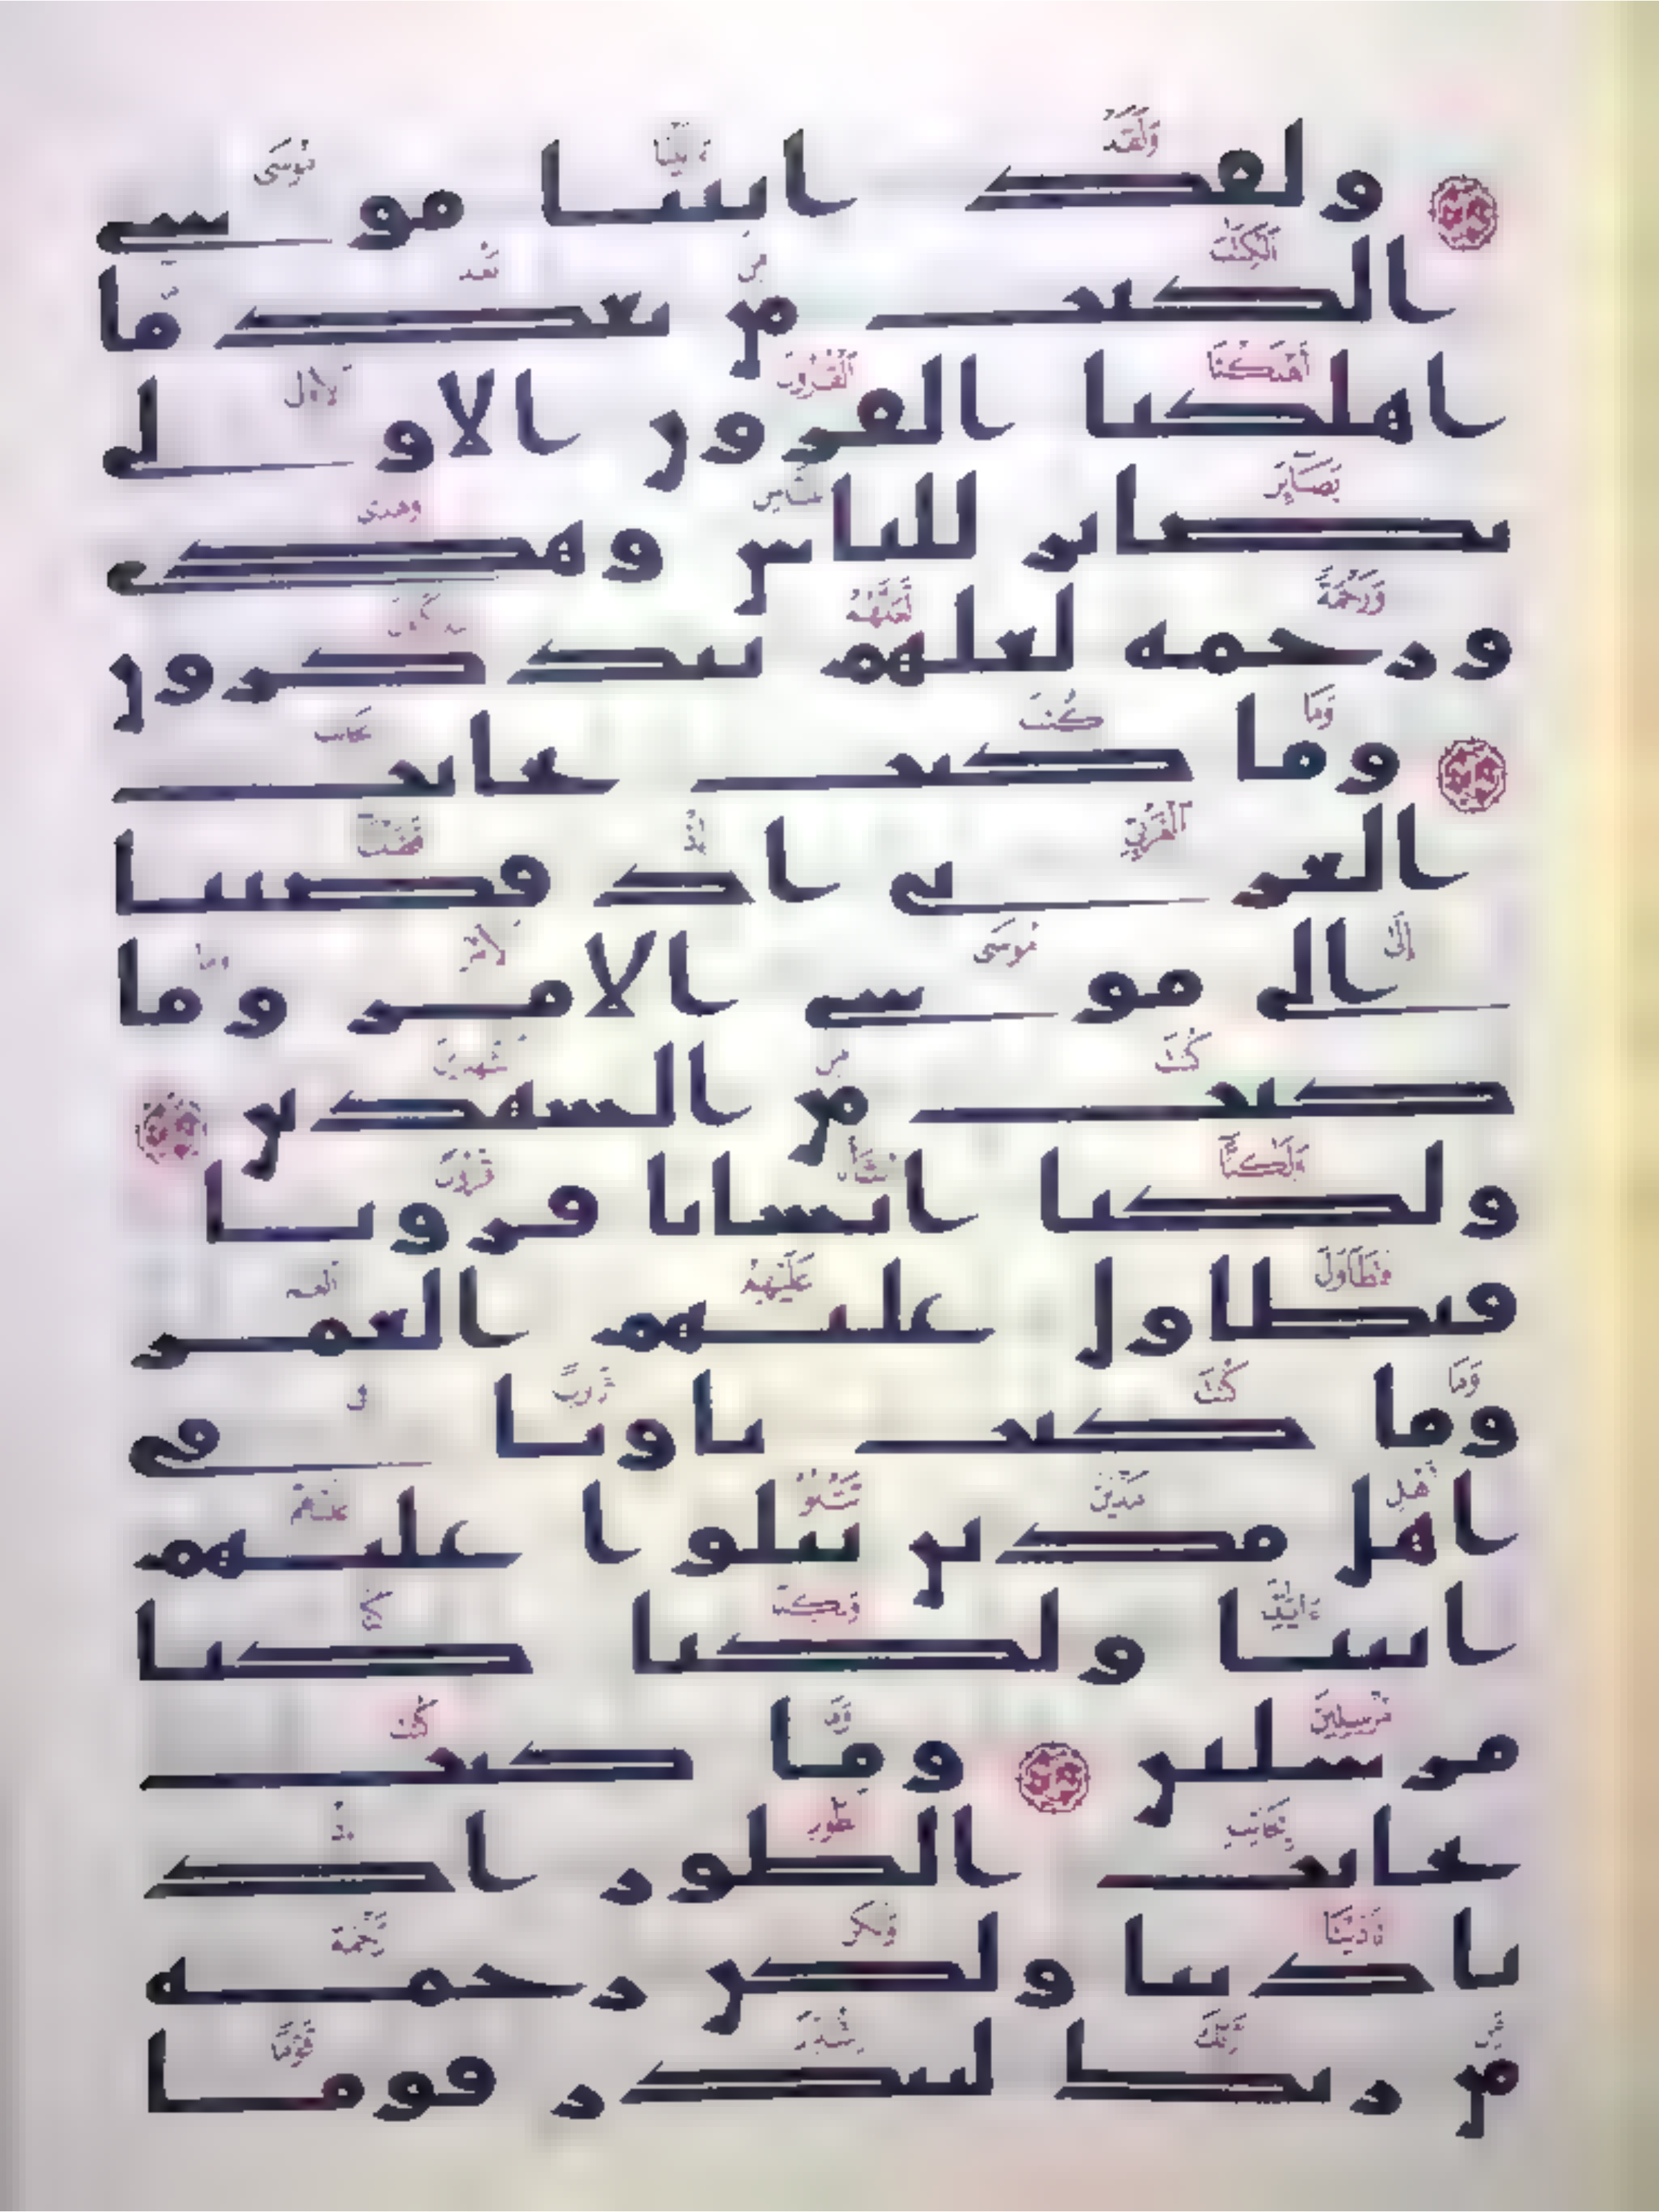 ولقد ءاتينا موسى
الكتب من بعد ما
أهلكنا القرون الأولى
بصائر للناس وهدى
ورحمة لعلهم يتذكرون
وما كنت بجانب
الغربي إذ قضينا
إلى موسى الأمر وما
كنت من الشهدين
ولكنا أنشأنا قرونا
فتطاول عليهم العمر
وما كنت ثاويا في
أهل مدين تتلوا عليهم
ءايتنا ولكنا كنا
مرسلين وما كنت
بجانب الطور إذ
نادينا ولكن رحمة
من ربك لتنذر قوما